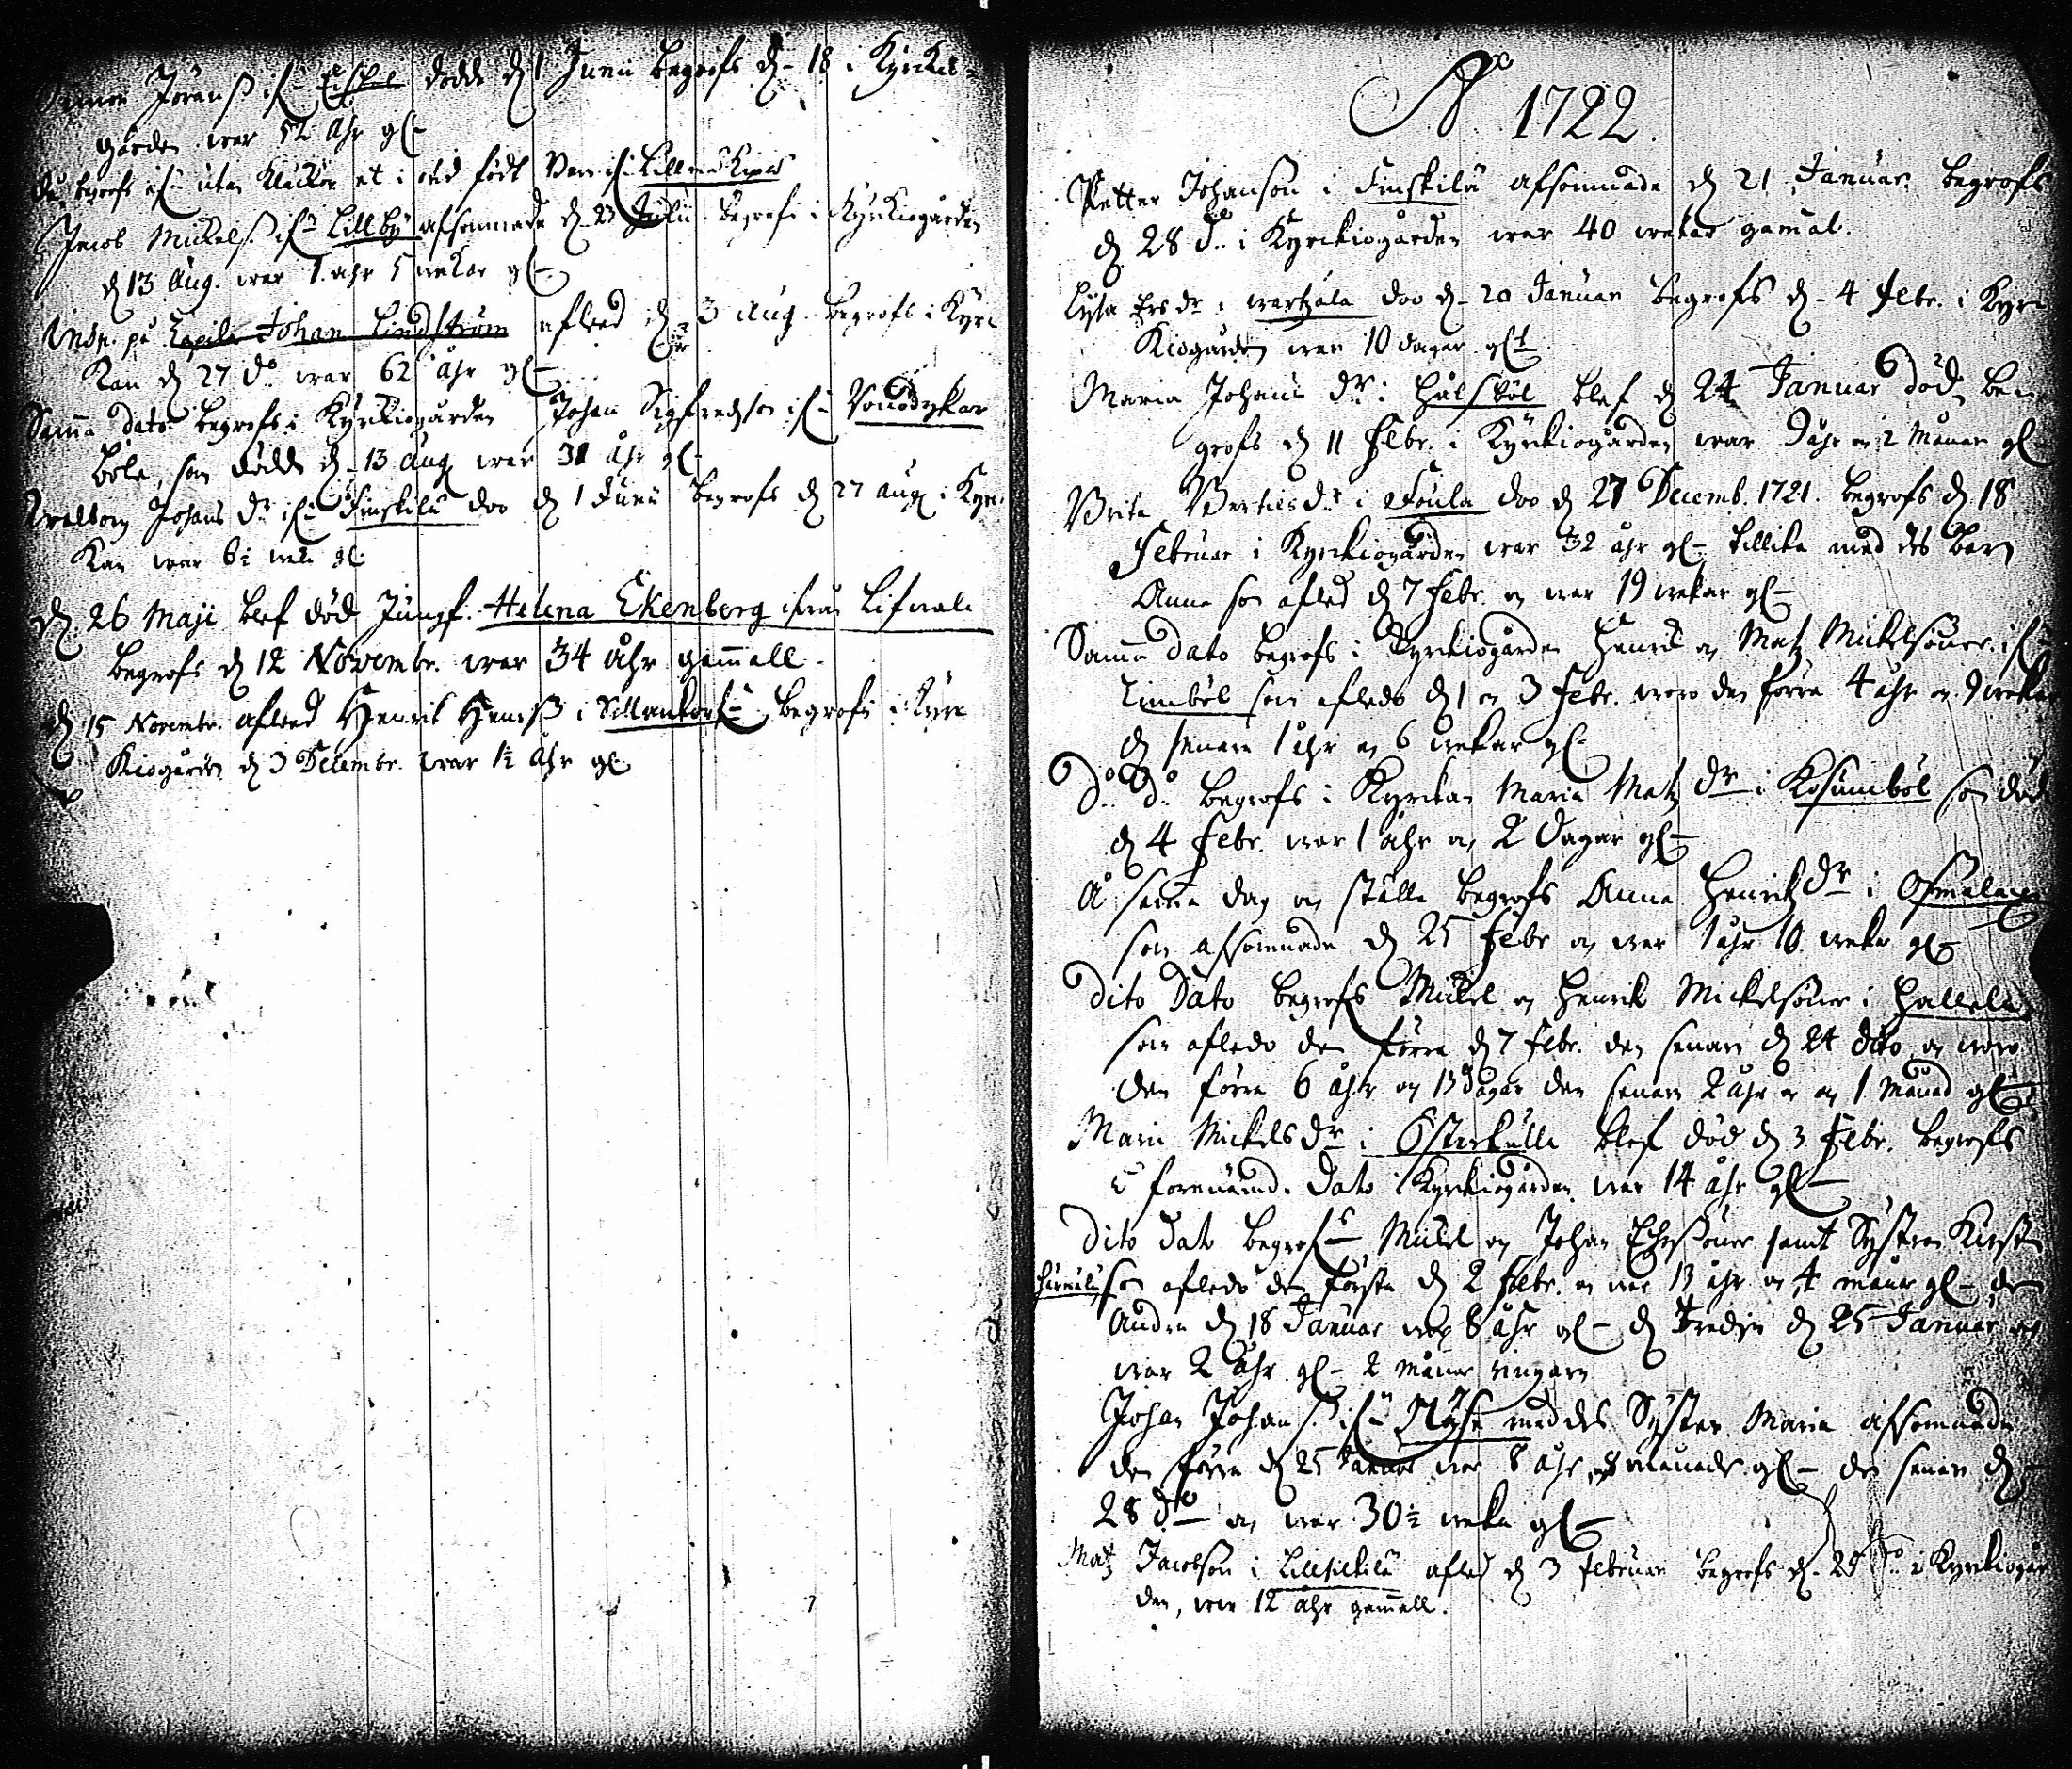 Simon Jöranß ifrå Eskil dödde d 1 Junii begrofs d. 18 i Kyrkio-
gården war 52 åhr gl
begrofs ifrån utan Klockor et i död född barn ifrå
Jacob Mickelß ifrå Lillby afsomnade d. 23 Julii begrofs i Kyrkiogården
d 13 Aug. war 1. åhr 5 wekor gl
Insp. på Johan Lindström afled d 3 Aug. begrofs i Kyr-
kan d 27 do war 62 åhr gl
Samma dato begrofs i Kyrkiogården Johan Sigfredson ifrå
böle, som dödde d. 13 Aug war 31 åhr gl
Walborg Johans dr ifrå Finskilä doo d 1 Junii begrofs d 27 aug i Kyr-
kan war 6½ weka gl
d. 26 Maji blef död Jungf. Helena Ekenberg ifrån Lifwala
begrofs d 12 Novembr. war 34 åhr gammall.
d 15 Novembr. afled Henrik Henrß i begrofs i Kyr
kiogården d 3 Decembr. war 1½ åhr gl
Ao 1722.
Petter Johanson i Finskilä afsomnade d 21 Januar. begrofs
d 28 do i Kyrkiogården war 40 wekor gamal.
Lysa Ers dr i wartsala doo d. 20 Januar begrofs d. 4 febr. i Kyr-
kiogården war 10 dagar glt
Maria Johans dr i Hålsböl blef d 24 Januar död, be-
grofs d 11 Febr. i Kyrkiogården war 9 åhr en 2 Månar gl
Brita Bertils dr i Foula doo d 27 Decemb. 1721. begrofs d. 18
Februar i Kyrkiogården war 32 åhr gl tillika med des barn
Anna som afled d 7 febr. en war 19 wekor gl
Samma dato begrofs i Kyrkiogården Henrik og Matz Mickelsöner ifrå
som afledo d 1 en 3 Febr. woro den förra 4 åhr en 9 wekor
d senare 1 åhr og 6 wekar gl
do do begrofs i Kyrckan Maria Matz dr i Kosumböl som dödde
d 4 febr. war 1 åhr og 2 dagar gl
Å samma dag og ställe begrofs Anna Henrichs dr i Osmalax
som afsomnade d 25 febr og war 1 åhr 10. weka gl
Dito Dato begrofs Mickel og Henrik Mickelsöner i Hallela
som afledo den förra d 7 febr. den senare d 24 dito og woro
den förra 6 åhr og 13 dagar den senare 2 åhr og 1 månad gl
Maria Mickels dr i Österkulla blef död d 3 Febr. begrofs
förnämnd. dato i Kyrkiogården war 14 åhr gl
Dito Dato begrofs Mickel og Johan Ehrssöner samt Systren Kirstin
Härmälä som afledo den förste d 2 febr. en war 13 åhr og 4 månar gl den
andre d 18 Januar war 8 åhr gl d tredje d 25 Januar og
war 2 åhr gl 2 månar ringare
Johan Johanß ifrå med des Syster Maria afsomnade
den förre d 25 Januar war 8 åhr månader gl den senare d
28 do og war 30½ weka gl
Matz Jacobson i Lillfilkilä afled d 3 februar begrofs d. 25 do i Kyrkiogår-
den, war 12 åhr gammall.